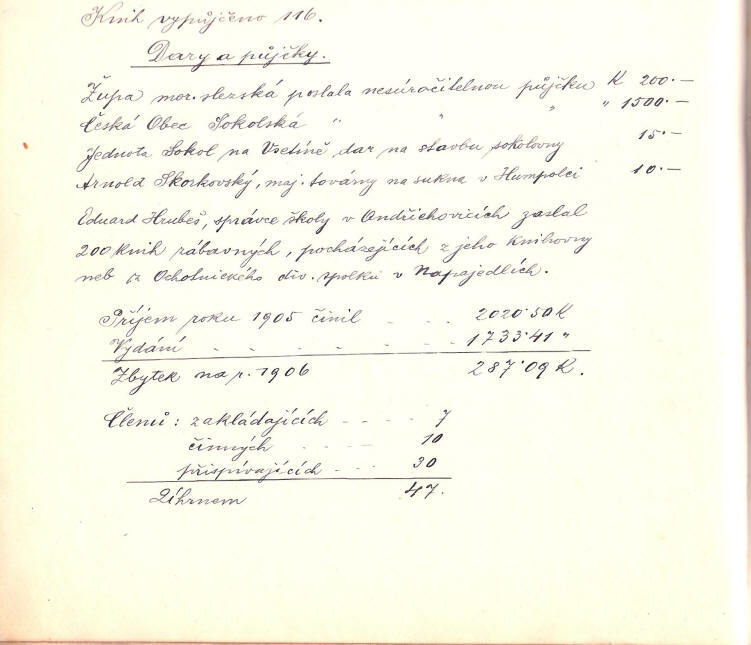 Knih vypůjčeno 116.
Dary a půjčky.
Župa mor. slezská poslala nesúročitelnou půjčku K 200·—
Česká Obec Sokolská " " " " 1500·—
Jednota Sokol na Vsetíně dar na stavbu sokolovny 15·—
Arnold Skorkovský, maj. továrny na sukna v Humpolci 10·—
Eduard Hrubeš, správce školy v Ondřichovicích zaslal
200 knih zábavných, pocházejících z jeho knihovny
neb z Ochotnického div. spolku v Napajedlích.
Příjem roku 1905 činil - - - 2020·50 K
Vydání - - - - - - 1733·41 "
Zbytek na r. 1906 287·09 K.
Členů: zakládajících - - - - 7
činných - - - - 10
přispívajících - - - 30
Úhrnem 47.